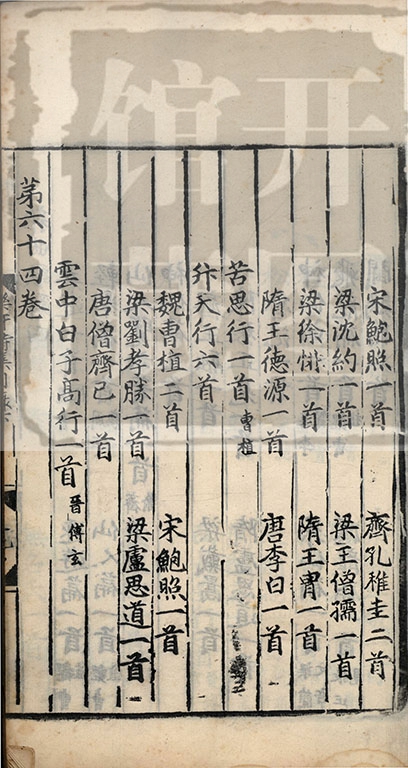 宋鮑照一首 齊孔稚圭二首
梁沈約一首 梁王僧孺一首
梁徐悱一首 隋王胄一首
隋王德源一首 唐李白一首
苦思行一首 曹植
升天行六首
魏曹植二首 宋鮑照一首
梁劉孝勝一首 梁盧思道一首
唐僧齊己一首
雲中白子高行一首 晉傅玄
第六十四卷
开
馆